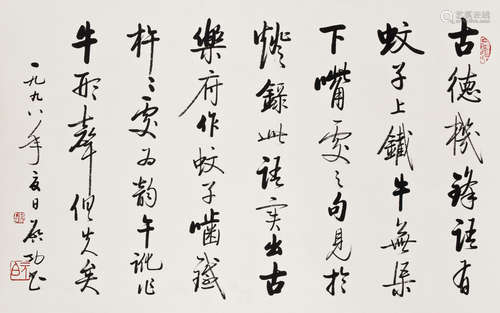 古德機鋒語有
蚊子上鐵牛無渠
下嘴處之句見於
燈錄此語實出古
樂府作蚊子嚙鐵
杵處为韵午訛作
牛形聲俱失矣
一九九八年夏日啟功书